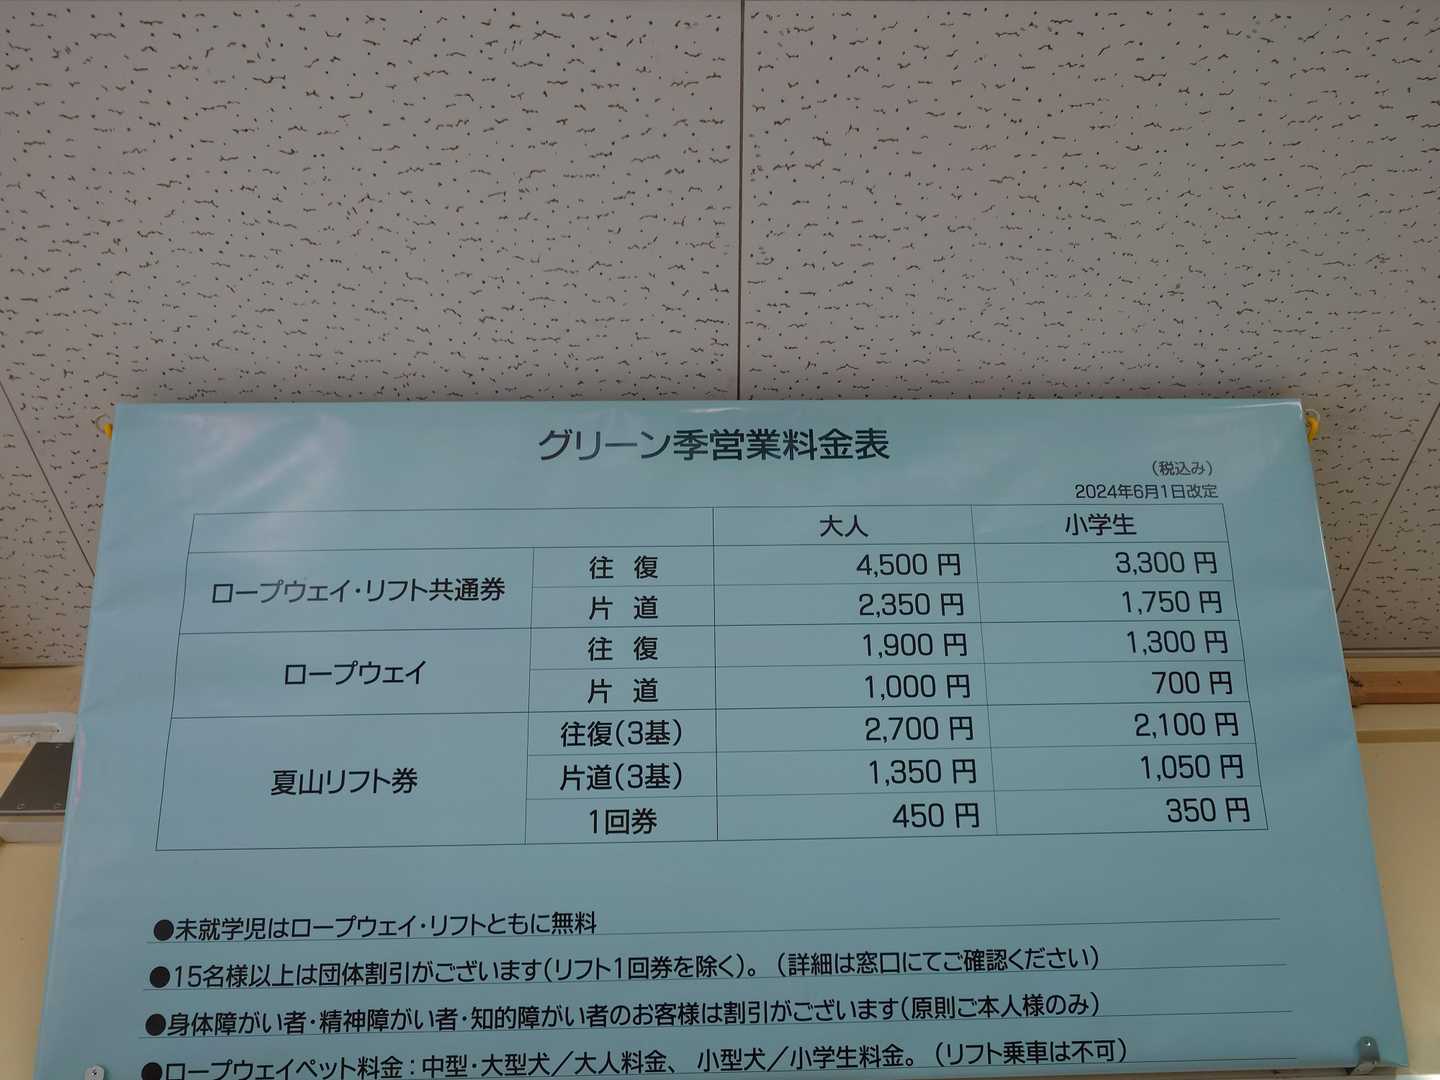 グリーン季営業料金表
(税込み)
2024年6月1日改定
大人 小学生
ロープウェイ・リフト共通券 往復 4,500円 3,300円
片道 2,350円 1,750円
ロープウェイ 往復 1,900円 1,300円
片道 1,000円 700円
夏山リフト券 往復(3基) 2,700円 2,100円
片道(3基) 1,350円 1,050円
1回券 450円 350円
●未就学児はロープウェイ・リフトともに無料
●15名様以上は団体割引がございます(リフト1回券を除く)。(詳細は窓口にてご確認ください)
●身体障がい者・精神障がい者・知的障がい者のお客様は割引がございます(原則ご本人様のみ)
●ロープウェイペット料金：中型・大型犬／大人料金、小型犬／小学生料金。(リフト乗車は不可)